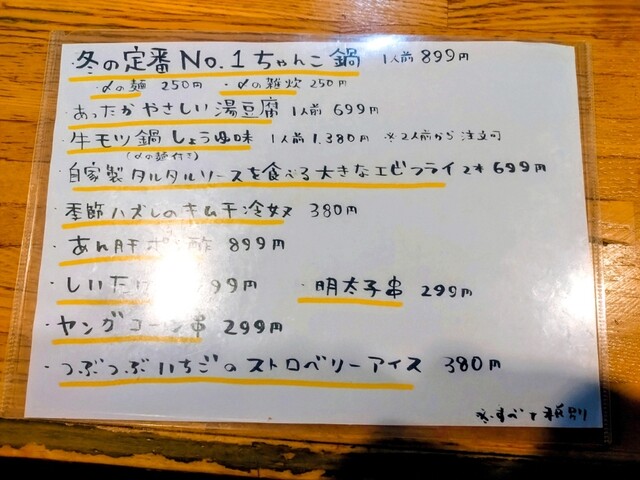 ・冬の定番No.1ちゃんこ鍋 1人前 899円
・〆の麺 250円 ・〆の雑炊 250円
・あったかやさしい湯豆腐 1人前 699円
・牛モツ鍋しょうゆ味 1人前 1.380円 ※2人前から注文可
(〆の麺付き)
・自家製タルタルソースを食べる大きなエビフライ 2本 699円
・季節ハズレのキムチ冷奴 380円
・あん肝ポン酢 899円
・しいたけ 99円 ・明太子串 299円
・ヤングコーン串 299円
・つぶつぶいちごのストロベリーアイス 380円
※すべて税別